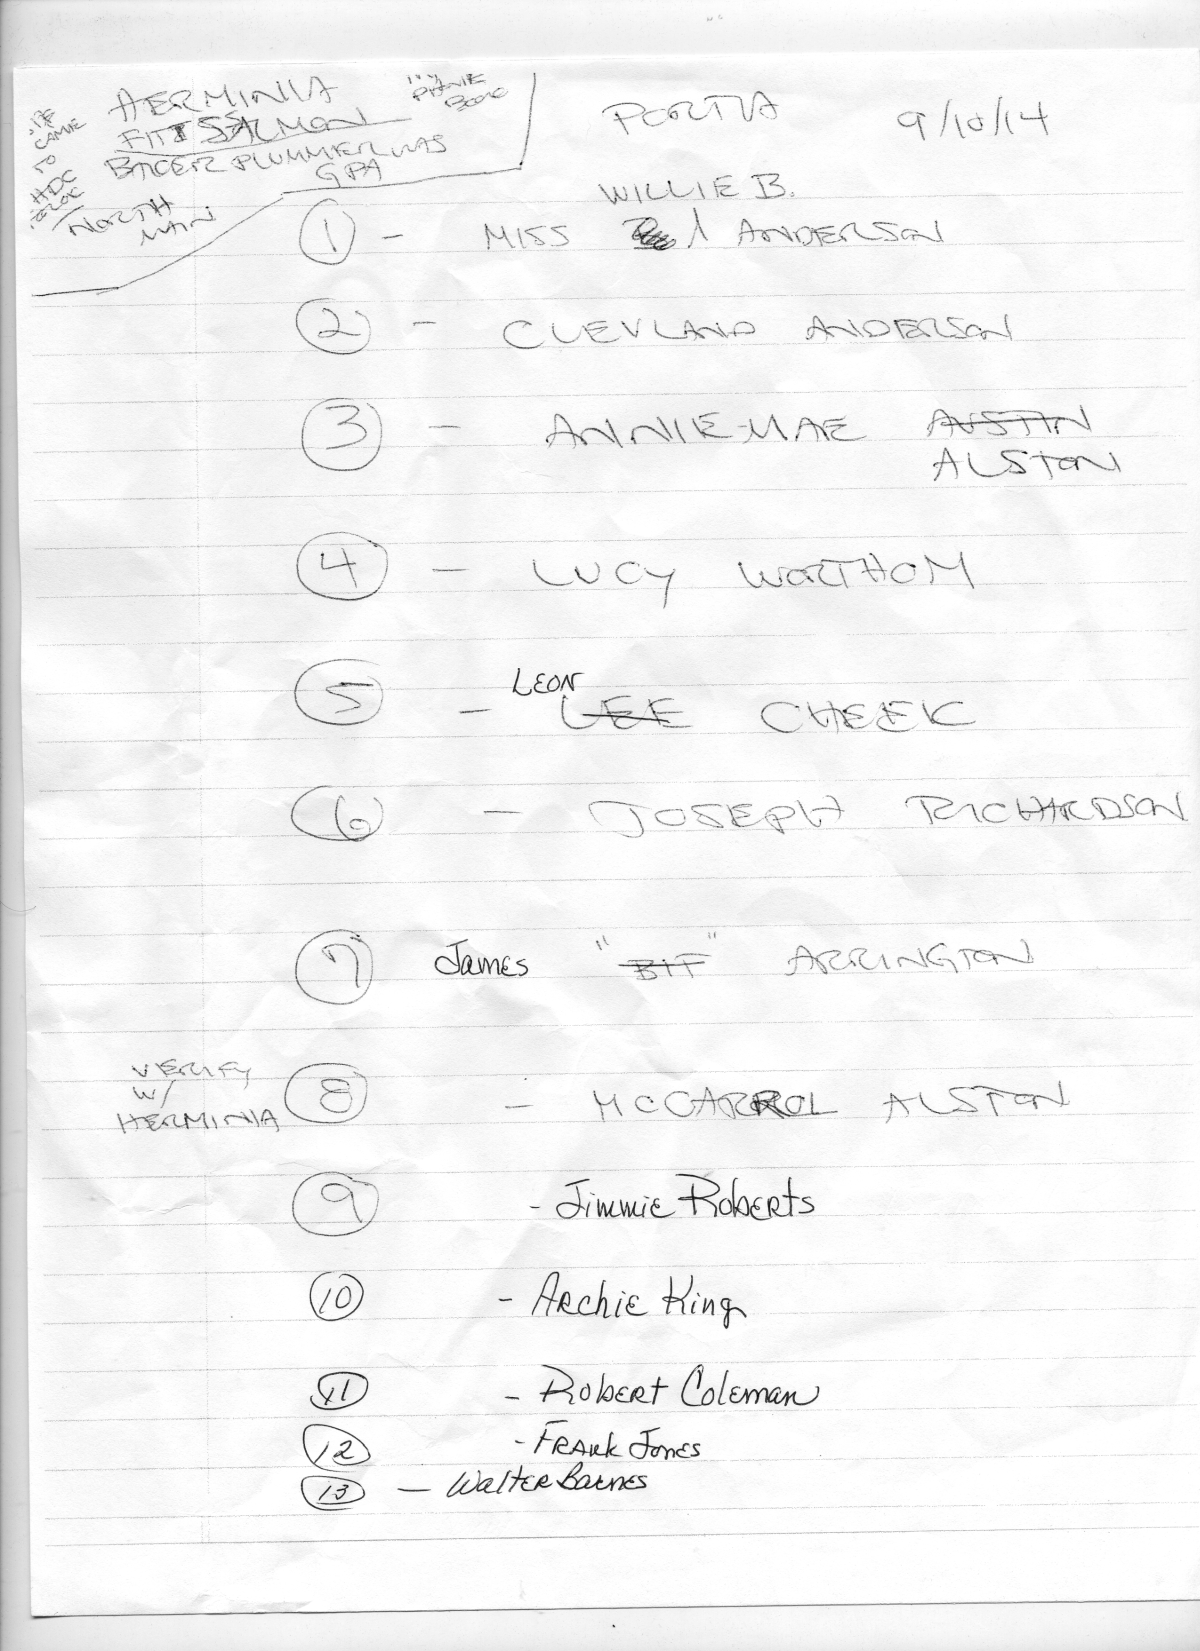 HERMINIA
FITTS SALMON
IN PHONE
BOOK
BAKER PLUMMER WAS
GPA
CAME
TO
HDC
NORTH
MAIN
PORTIA 9/10/14
WILLIE B.
1 - MISS ANDERSON
2 - CLEVLAND ANDERSON
3 - ANNIE-MAE AUSTIN
ALSTON
4 - LUCY WORTHOM
LEON
5 - LEE CHEEK
6 - JOSEPH RICHARDSON
7 James "BIF" ARRINGTON
VERIFY
W/
HERMINIA
8 - MCCARROL ALSTON
9 - Jimmie Roberts
10 - Archie King
11 - Robert Coleman
12 - Frank Jones
13 - Walter Barnes